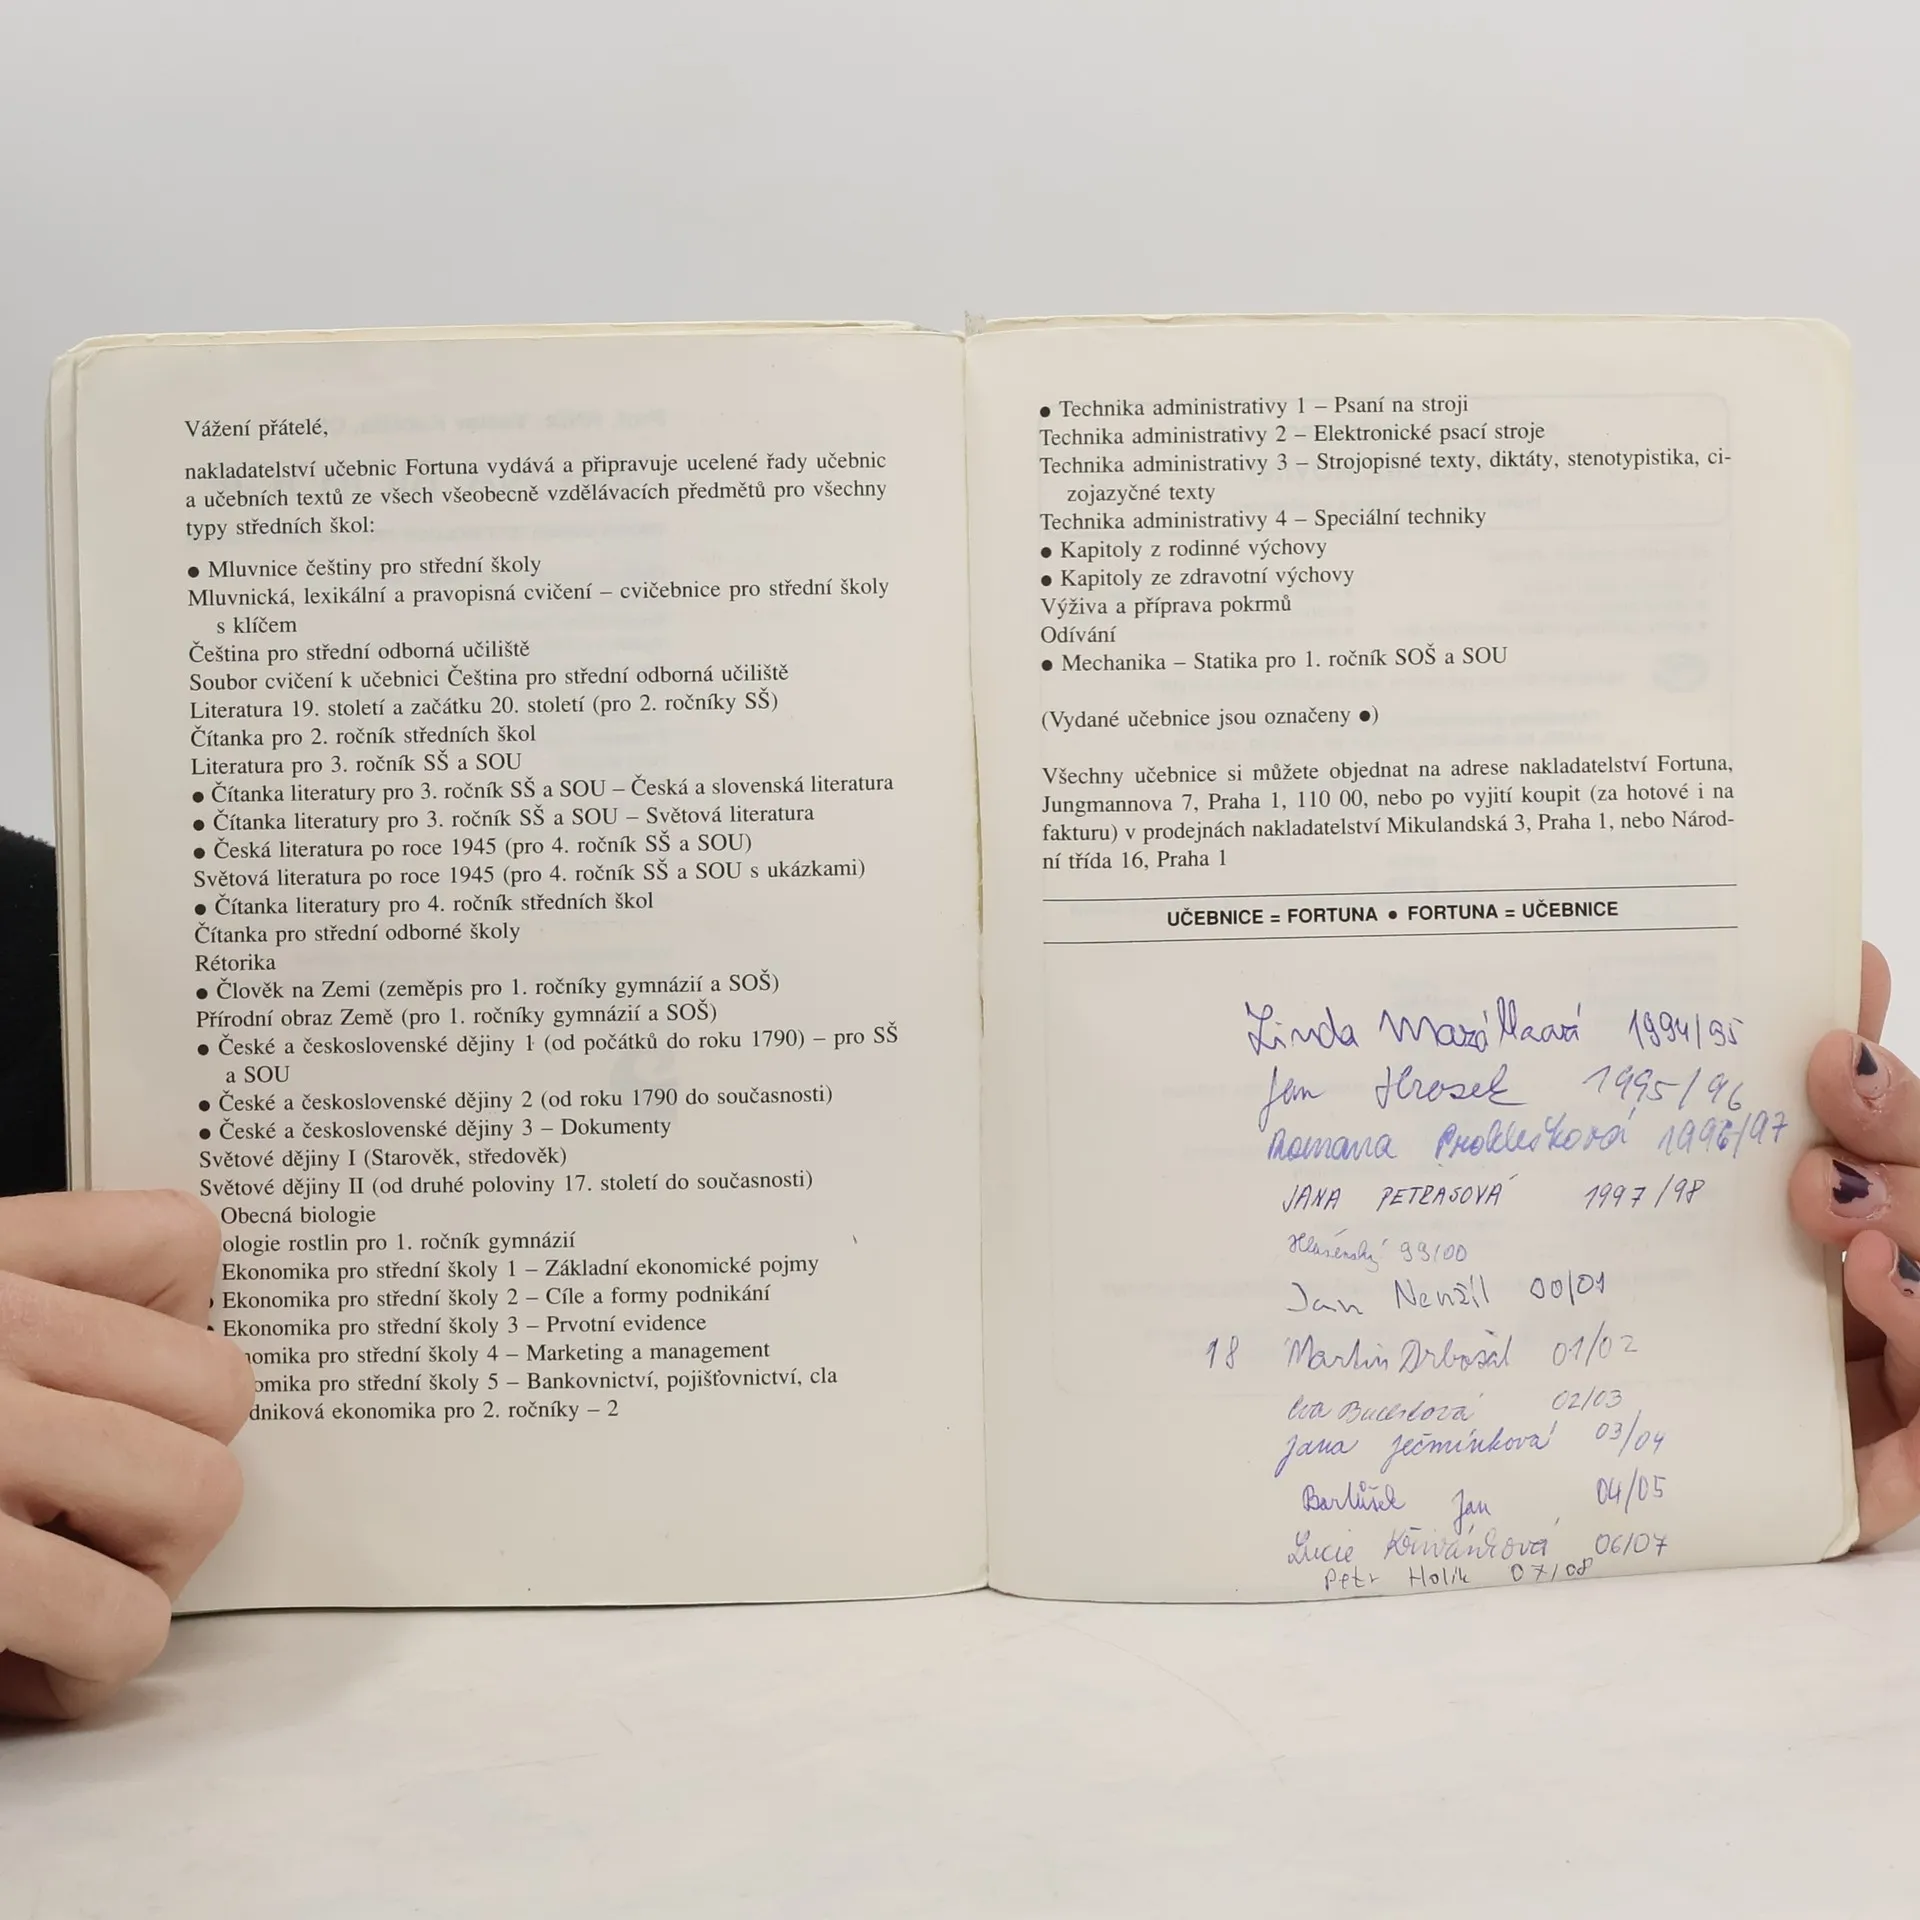 Vážení přátelé,
nakladatelství učebnic Fortuna vydává a připravuje ucelené řady učebnic
a učebních textů ze všech všeobecně vzdělávacích předmětů pro všechny
typy středních škol:
● Mluvnice češtiny pro střední školy
Mluvnická, lexikální a pravopisná cvičení – cvičebnice pro střední školy
s klíčem
Čeština pro střední odborná učiliště
Soubor cvičení k učebnici Čeština pro střední odborná učiliště
Literatura 19. století a začátku 20. století (pro 2. ročníky SŠ)
Čítanka pro 2. ročník středních škol
Literatura pro 3. ročník SŠ a SOU
● Čítanka literatury pro 3. ročník SŠ a SOU – Česká a slovenská literatura
● Čítanka literatury pro 3. ročník SŠ a SOU – Světová literatura
● Česká literatura po roce 1945 (pro 4. ročník SŠ a SOU)
Světová literatura po roce 1945 (pro 4. ročník SŠ a SOU s ukázkami)
● Čítanka literatury pro 4. ročník středních škol
Čítanka pro střední odborné školy
Rétorika
● Člověk na Zemi (zeměpis pro 1. ročníky gymnázií a SOŠ)
Přírodní obraz Země (pro 1. ročníky gymnázií a SOŠ)
● České a československé dějiny 1 (od počátků do roku 1790) – pro SŠ
a SOU
● České a československé dějiny 2 (od roku 1790 do současnosti)
● České a československé dějiny 3 – Dokumenty
Světové dějiny I (Starověk, středověk)
Světové dějiny II (od druhé poloviny 17. století do současnosti)
Obecná biologie
ologie rostlin pro 1. ročník gymnázií
Ekonomika pro střední školy 1 – Základní ekonomické pojmy
Ekonomika pro střední školy 2 – Cíle a formy podnikání
Ekonomika pro střední školy 3 – Prvotní evidence
nomika pro střední školy 4 – Marketing a management
omika pro střední školy 5 – Bankovnictví, pojišťovnictví, cla
dniková ekonomika pro 2. ročníky – 2
● Technika administrativy 1 – Psaní na stroji
Technika administrativy 2 – Elektronické psací stroje
Technika administrativy 3 – Strojopisné texty, diktáty, stenotypistika, ci-
zojazyčné texty
Technika administrativy 4 – Speciální techniky
● Kapitoly z rodinné výchovy
● Kapitoly ze zdravotní výchovy
Výživa a příprava pokrmů
Odívání
● Mechanika – Statika pro 1. ročník SOŠ a SOU
(Vydané učebnice jsou označeny ●)
Všechny učebnice si můžete objednat na adrese nakladatelství Fortuna,
Jungmannova 7, Praha 1, 110 00, nebo po vyjití koupit (za hotové i na
fakturu) v prodejnách nakladatelství Mikulandská 3, Praha 1, nebo Národ-
ní třída 16, Praha 1
UČEBNICE = FORTUNA ● FORTUNA = UČEBNICE
Linda 1994/95
Jan Hrosek 1995/96
Romana 1996/97
JANA PETRASOVÁ 1997/98
99/00
Jan Navrátil 00/01
18 Martin Drbošal 01/02
Eva 02/03
Jana Ječmínková 03/04
Bartůšek Jan 04/05
Lucie Křivánková 06/07
Petr Holík 07/08